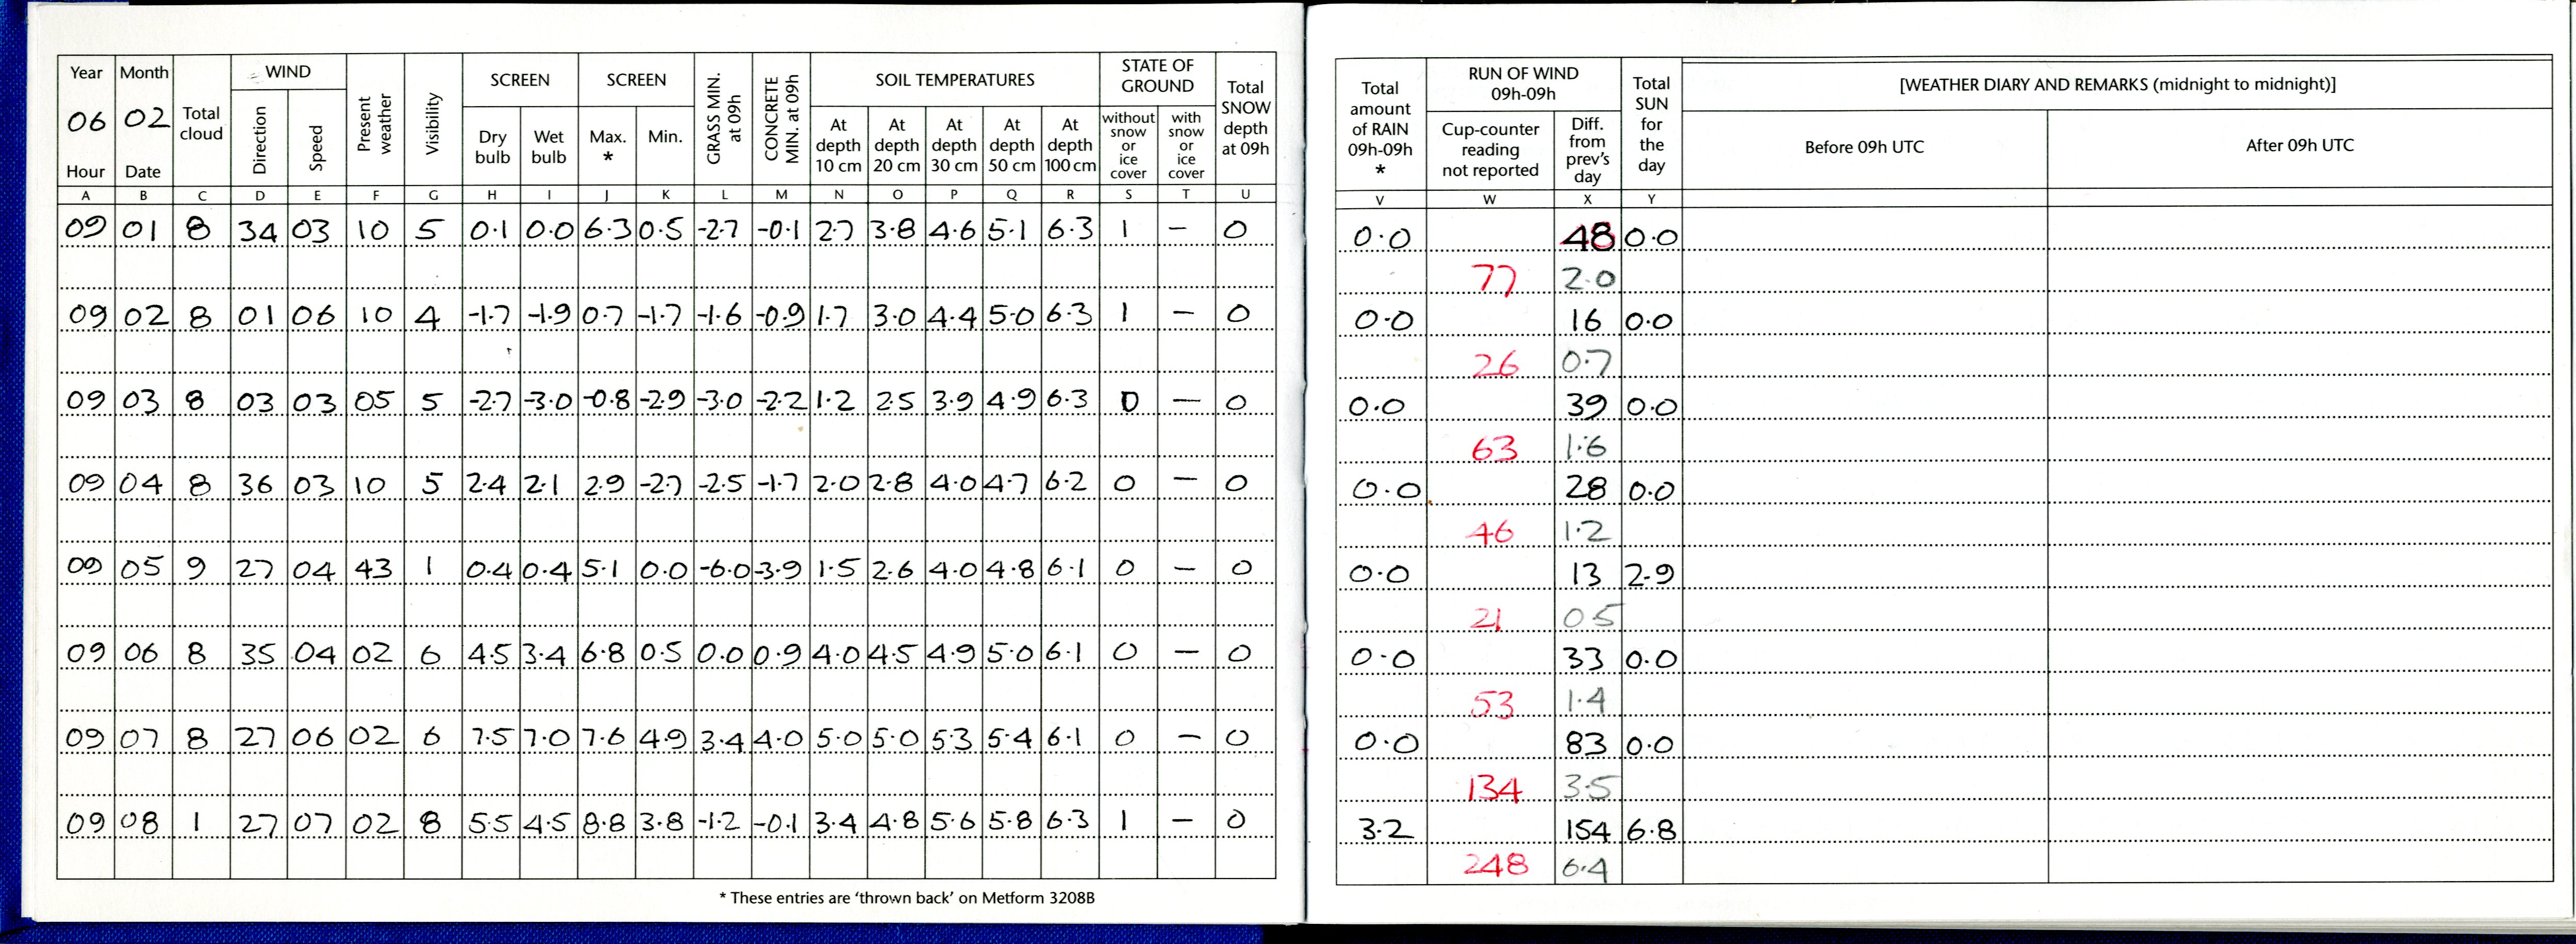 Year Month Total cloud WIND Present weather Visibility SCREEN SCREEN GRASS MIN. at 09h CONCRETE MIN. at 09h SOIL TEMPERATURES STATE OF GROUND Total SNOW depth at 09h
06 02 Direction Speed Dry bulb Wet bulb Max. * Min. At depth 10 cm At depth 20 cm At depth 30 cm At depth 50 cm At depth 100 cm without snow or ice cover with snow or ice cover
Hour Date
A B C D E F G H I J K L M N O P Q R S T U
09 01 8 34 03 10 5 0.1 0.0 6.3 0.5 -2.7 -0.1 2.7 3.8 4.6 5.1 6.3 1 – 0
09 02 8 01 06 10 4 -1.7 -1.9 0.7 -1.7 -1.6 -0.9 1.7 3.0 4.4 5.0 6.3 1 – 0
09 03 8 03 03 05 5 -2.7 -3.0 -0.8 -2.9 -3.0 -2.2 1.2 2.5 3.9 4.9 6.3 0 – 0
09 04 8 36 03 10 5 2.4 2.1 2.9 -2.7 -2.5 -1.7 2.0 2.8 4.0 4.7 6.2 0 – 0
09 05 9 27 04 43 1 0.4 0.4 5.1 0.0 -6.0 -3.9 1.5 2.6 4.0 4.8 6.1 0 – 0
09 06 8 35 04 02 6 4.5 3.4 6.8 0.5 0.0 0.9 4.0 4.5 4.9 5.0 6.1 0 – 0
09 07 8 27 06 02 6 7.5 7.0 7.6 4.9 3.4 4.0 5.0 5.0 5.3 5.4 6.1 0 – 0
09 08 1 27 07 02 8 5.5 4.5 8.8 3.8 -1.2 -0.1 3.4 4.8 5.6 5.8 6.3 1 – 0
* These entries are 'thrown back' on Metform 3208B
Total amount of RAIN 09h-09h * RUN OF WIND 09h-09h Total SUN for the day [WEATHER DIARY AND REMARKS (midnight to midnight)]
Cup-counter reading not reported Diff. from prev's day Before 09h UTC After 09h UTC
V W X Y
0.0 48 0.0
77 2.0
0.0 16 0.0
26 0.7
0.0 39 0.0
63 1.6
0.0 28 0.0
46 1.2
0.0 13 2.9
21 0.5
0.0 33 0.0
53 1.4
0.0 83 0.0
134 3.5
3.2 154 6.8
248 6.4